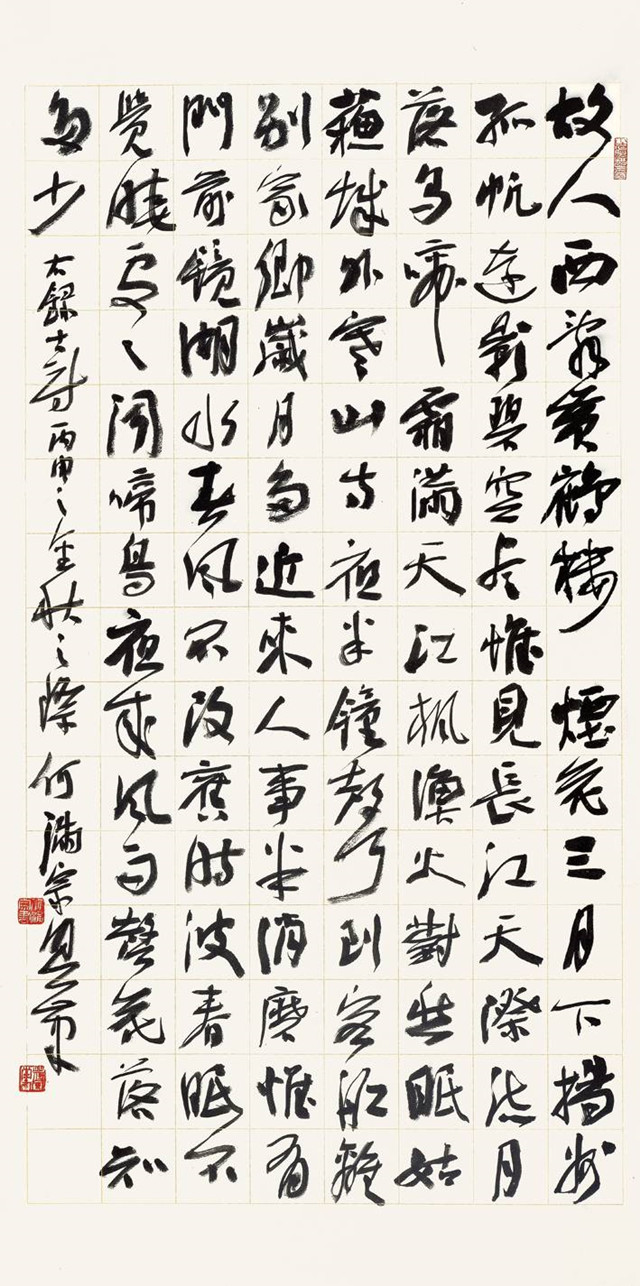 故人西辭黃鶴樓煙花三月下揚州
孤帆遠影碧空尽惟見長江天際流月
落烏啼霜滿天江楓漁火對愁眠姑
蘇城外寒山寺夜半鐘聲到客船離
別家鄉歲月多近來人事半消磨惟有
門前鏡湖水春風不改舊時波春眠不
覺曉處々聞啼鳥夜來風雨聲花落知
多少 右錄古詩丙申之金秋之際何滿宗